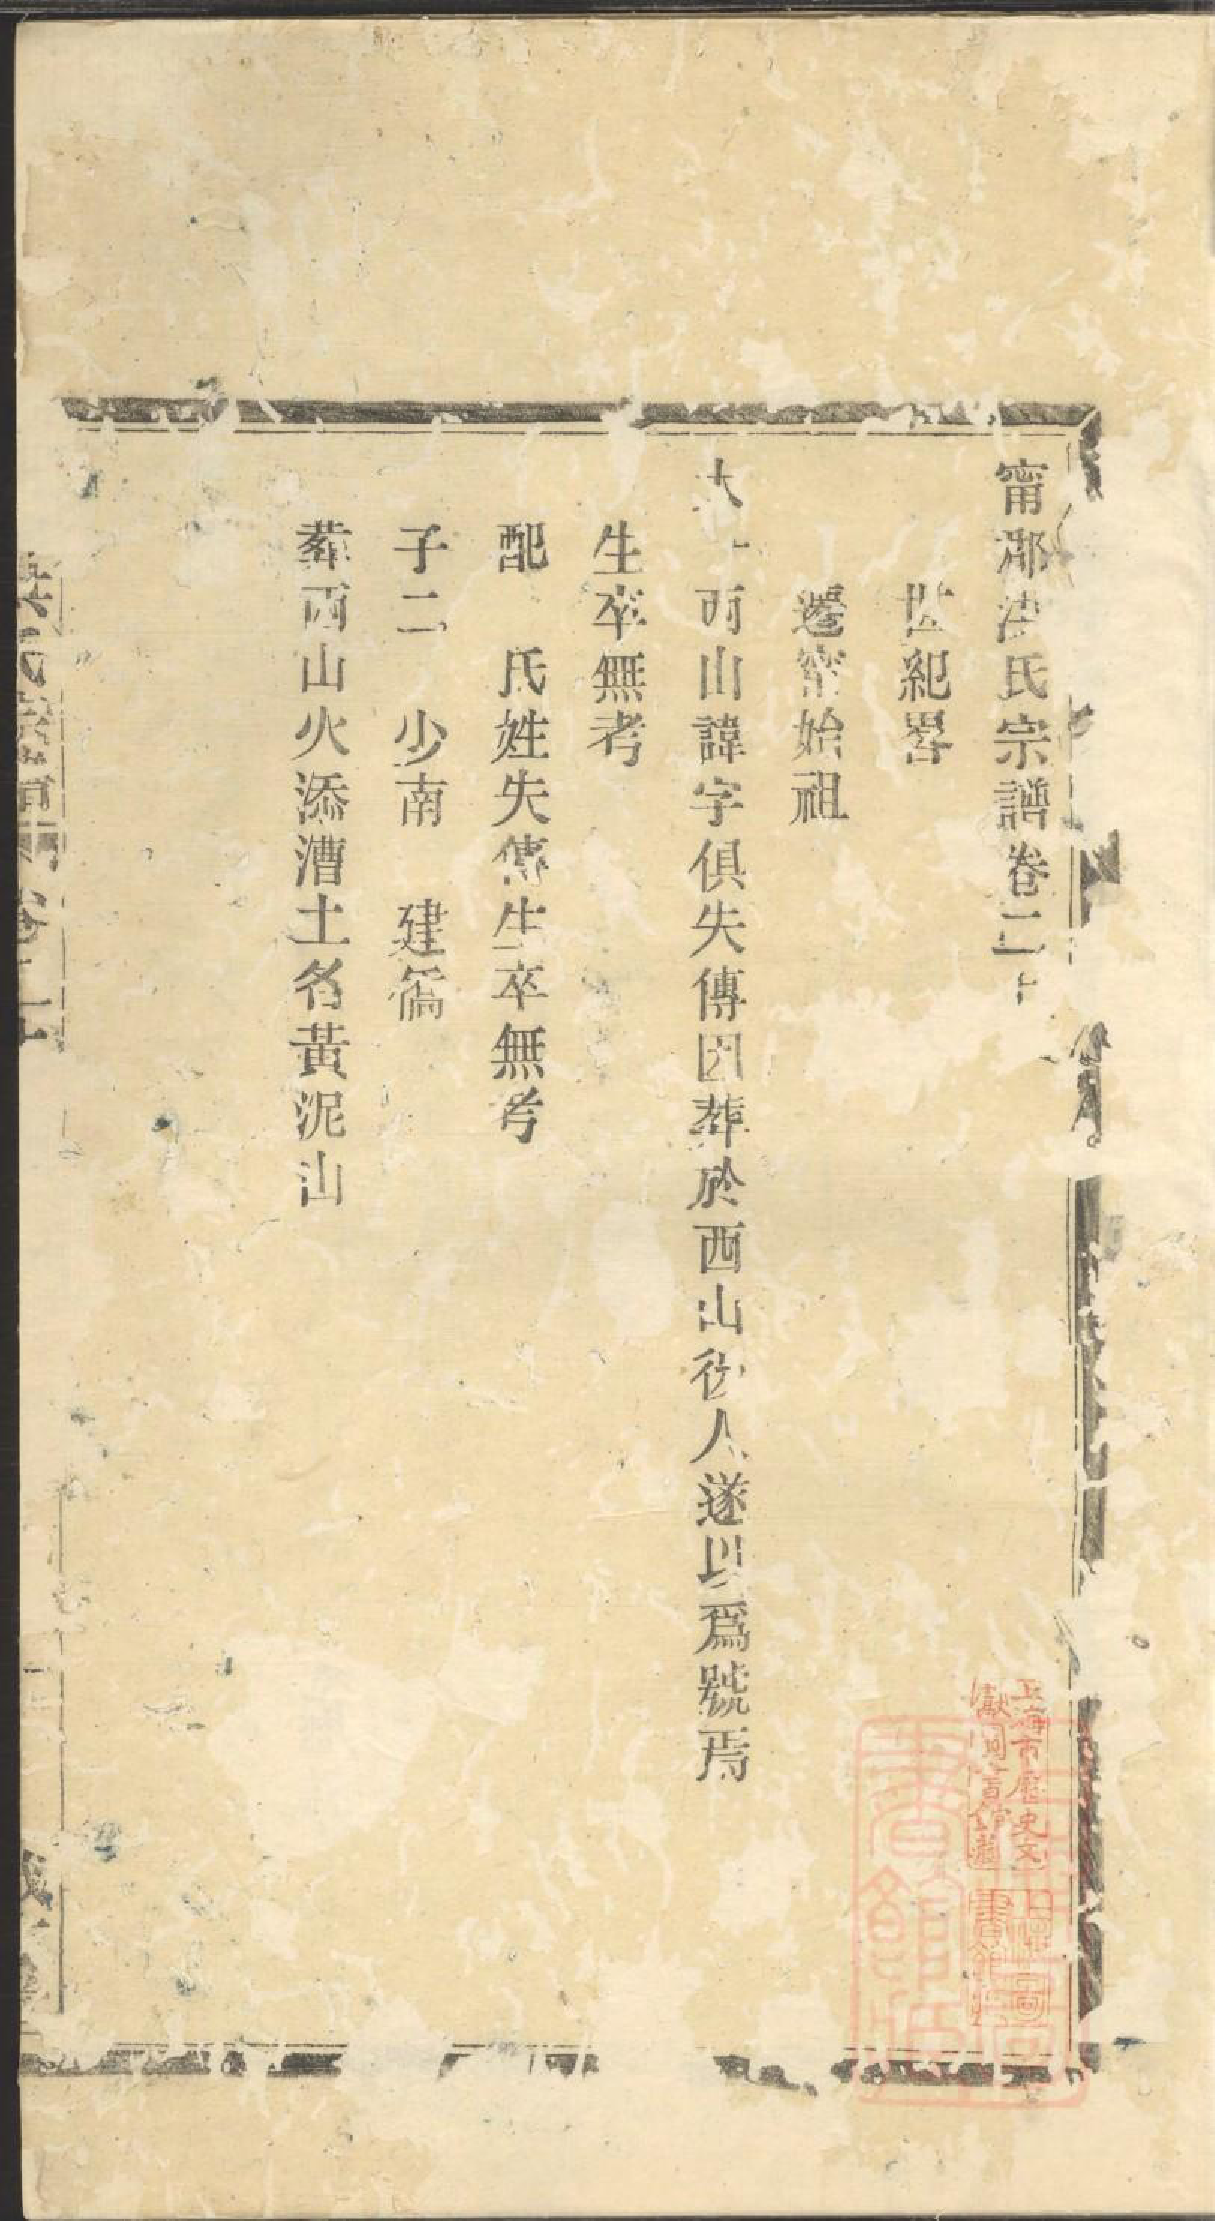 甯郡洪氏宗譜卷二
世紀畧
遷甯始祖
大一 西山諱字俱失傳因葬於西山後人遂以爲號焉
生卒無考
配 氏姓失傳生卒無考
子二 少南 建
葬西山火添漕土名黃泥山
洪氏宗譜 卷二
上海市歷史文
獻圖書館藏
上海圖
書館藏